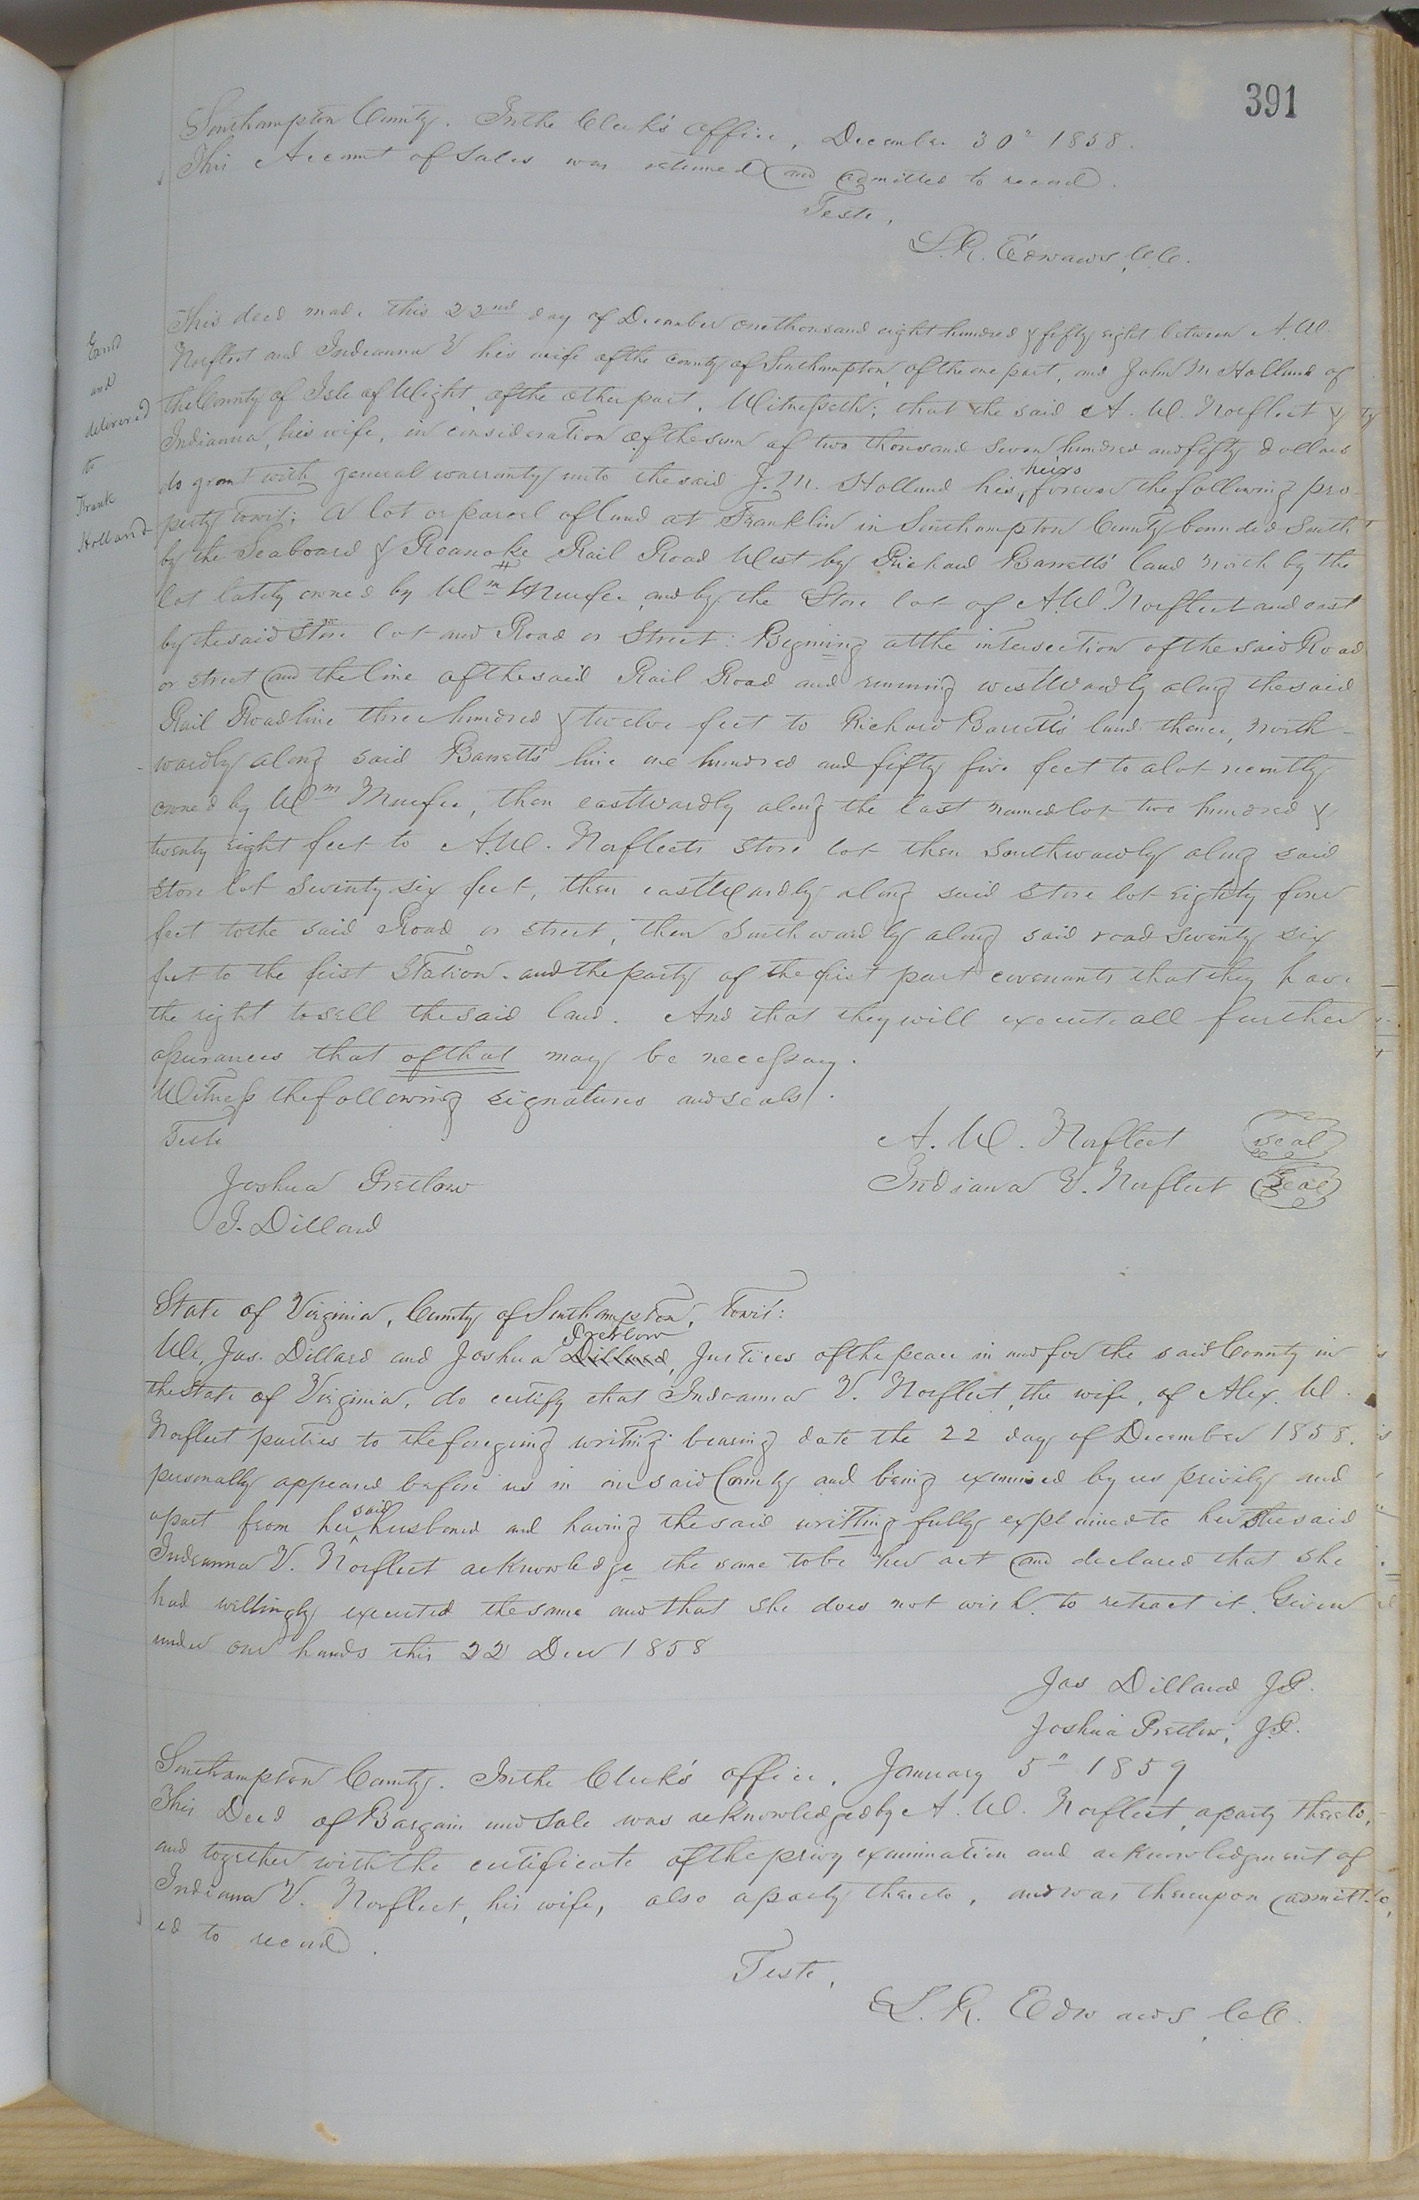 391
Southampton County. In the Clerk's office, December 30" 1858.
This Account of Sales was returned and admitted to record.
Teste,
L. R. Edwards, C.C.
Exmd
and
delivered
to
Frank
Holland
This deed made this 22nd day of December one thousand eight hundred & fifty eight between A. W.
Norfleet and Indeanna V his wife of the county of Southampton, of the one part, and John M Holland of
the County of Isle of Wight, of the other part, Witnesseth; that the said A. W. Norfleet &
Indianna, his wife, in consideration of the sum of two thousand seven hundred and fifty dollars
do grant with general warranty unto the said J. M. Holland his, heirs forever the following pro-
perty towit; A lot or parcel of land at Franklin in Southampton County bounded South
by the Seaboard & Roanoke Rail Road West by Richard Barrett's land north by the
lot lately owned by Wm Murfee, and by the Store lot of A.W. Norfleet and east
by the said Store lot and Road or Street: Begining at the intersection of the said Road
or street and the line of the said Rail Road and running westwardly along the said
Rail Road line three hundred & twelve feet to Richard Barrett's land thence, north-
wardly along said Barretts' line one hundred and fifty five feet to a lot recently
owned by Wm Murfee, then eastwardly along the last named lot two hundred &
twenty eight feet to A.W. Norfleets store lot then southwardly along said
store lot seventy six feet, then eastwardly along said store lot eighty four
feet to the said Road or street, then southwardly along said road seventy six
feet to the first station. and the party of the first part covenants that they have
the right to sell the said land. And that they will execute all further
assurances that of that may be necessary.
Witness the following signatures and seals.
Teste
A. W. Norfleet Seal
Joshua Pretlow
Indiana V. Norfleet Seal
J. Dillard
State of Virginia, County of Southampton, Towit:
We, Jas. Dillard and Joshua Dillard Pretlow, Justices of the peace in and for the said County in
the State of Virginia, do certify that Indeanna V. Norfleet, the wife, of Alex. W.
Norfleet parties to the foregoing writing bearing date the 22 day of December 1858.
personally appeared before us in our said County and being examined by us privily and
apart from her said husband and having the said writting fully explained to her she said
Indeanna V. Norfleet acknowledge the same to be her act and declared that she
had willingly executed the same and that she does not wish to retract it. Given
under our hands this 22 Decr 1858
Jas Dillard J.P.
Joshua Pretlow, J.P.
Southampton County. In the Clerk's office, January 5" 1859
This Deed of Bargain and Sale was acknowledged by A. W. Norfleet, a party thereto,
and together with the certificate of the privy examination and acknowledgment of
Indiana V. Norfleet, his wife, also a party thereto, and was thereupon admitt-
ed to record.
Teste,
L. R. Edwards, C.C.